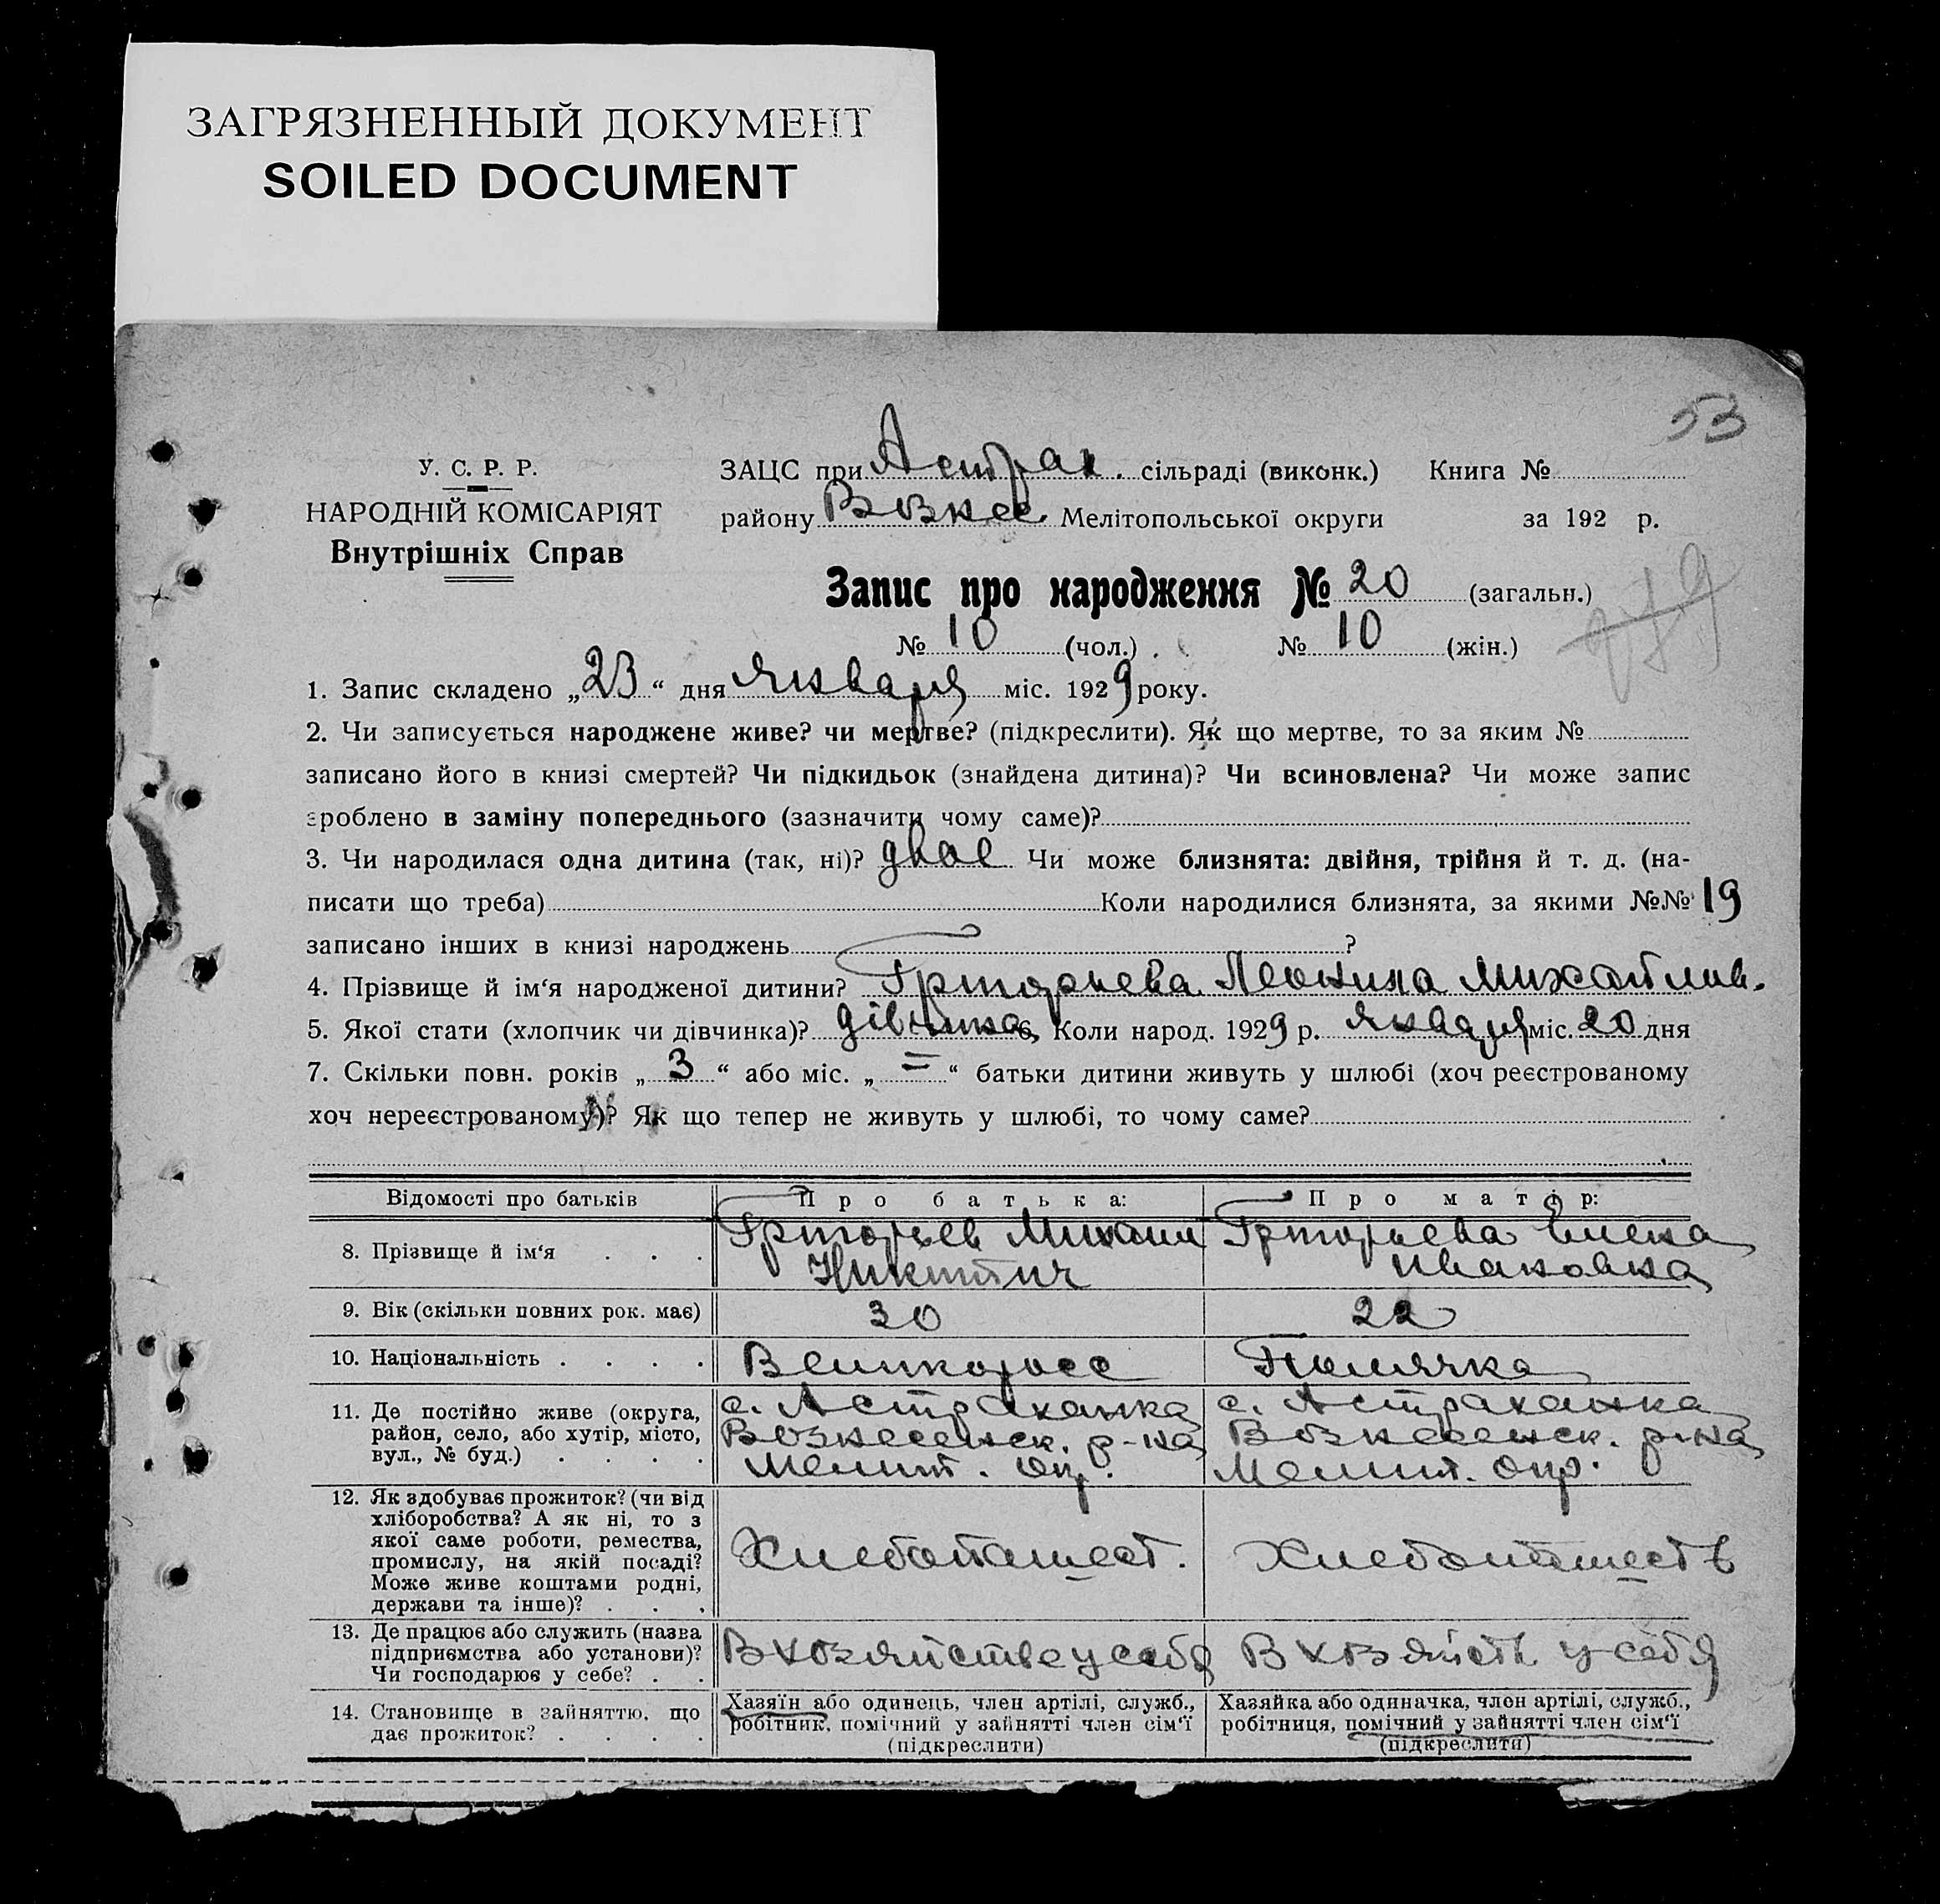 ЗАГРЯЗНЕННЫЙ ДОКУМЕНТ
SOILED DOCUMENT
53
У. С. Р. Р.
НАРОДНІЙ КОМІСАРІЯТ
Внутрішніх Справ
ЗАЦС при Астрах. сільраді (виконк.) Книга №
району Вознес. Мелітопольської округи за 192 р.
Запис про народження № 20 (загальн.)
№ 10 (чол.) № 10 (жін.)
1. Запис складено „23“ дня Января міс. 1929 року.
2. Чи записується народжене живе? чи мертве? (підкреслити). Як що мертве, то за яким №
записано його в книзі смертей? Чи підкидьок (знайдена дитина)? Чи всиновлена? Чи може запис
зроблено в заміну попереднього (зазначити чому саме)?
3. Чи народилася одна дитина (так, ні)? двое Чи може близнята: двійня, трійня й т. д. (на-
писати що треба) Коли народилися близнята, за якими №№ 19
записано інших в книзі народжень ?
4. Прізвище й ім‘я народженої дитини? Григорьева Леонина Михайлов.
5. Якої стати (хлопчик чи дівчинка)? дівчинка 6. Коли народ. 1929 р. января міс. 20 дня
7. Скільки повн. років „3“ або міс. „=“ батьки дитини живуть у шлюбі (хоч реєстрованому
хоч нереєстрованому)? Як що тепер не живуть у шлюбі, то чому саме?
Відомості про батьків Про батька: Про матір:
8. Прізвище й ім‘я . . . Григорьев Михаил Никитич Григорьева Елена Ивановна
9. Вік (скільки повних рок. має) 30 22
10. Національність . . . . Великоросс Полячка
11. Де постійно живе (округа, с. Астраханка с. Астраханка
район, село, або хутір, місто, Вознесенск. р-на Вознесенск. р-на
вул., № буд.) . . . . Мелит. окр. Мелит. окр.
12. Як здобуває прожиток? (чи від
хліборобства? А як ні, то з
якої саме роботи, ремества,
промислу, на якій посаді? Хлебопашест. Хлебопашеств
Може живе коштами родні,
держави та інше)? . . .
13. Де працює або служить (назва
підприємства або установи)? В хозяйстве у себя В хозяйств у себя
Чи господарює у себе? . .
14. Становище в зайняттю, що Хазяїн або одинець, член артілі, служб., Хазяйка або одиначка, член артілі, служб.,
дає прожиток? . . . . робітник, помічний у зайнятті член сім‘ї робітниця, помічний у зайнятті член сім‘ї
(підкреслити) (підкреслити)